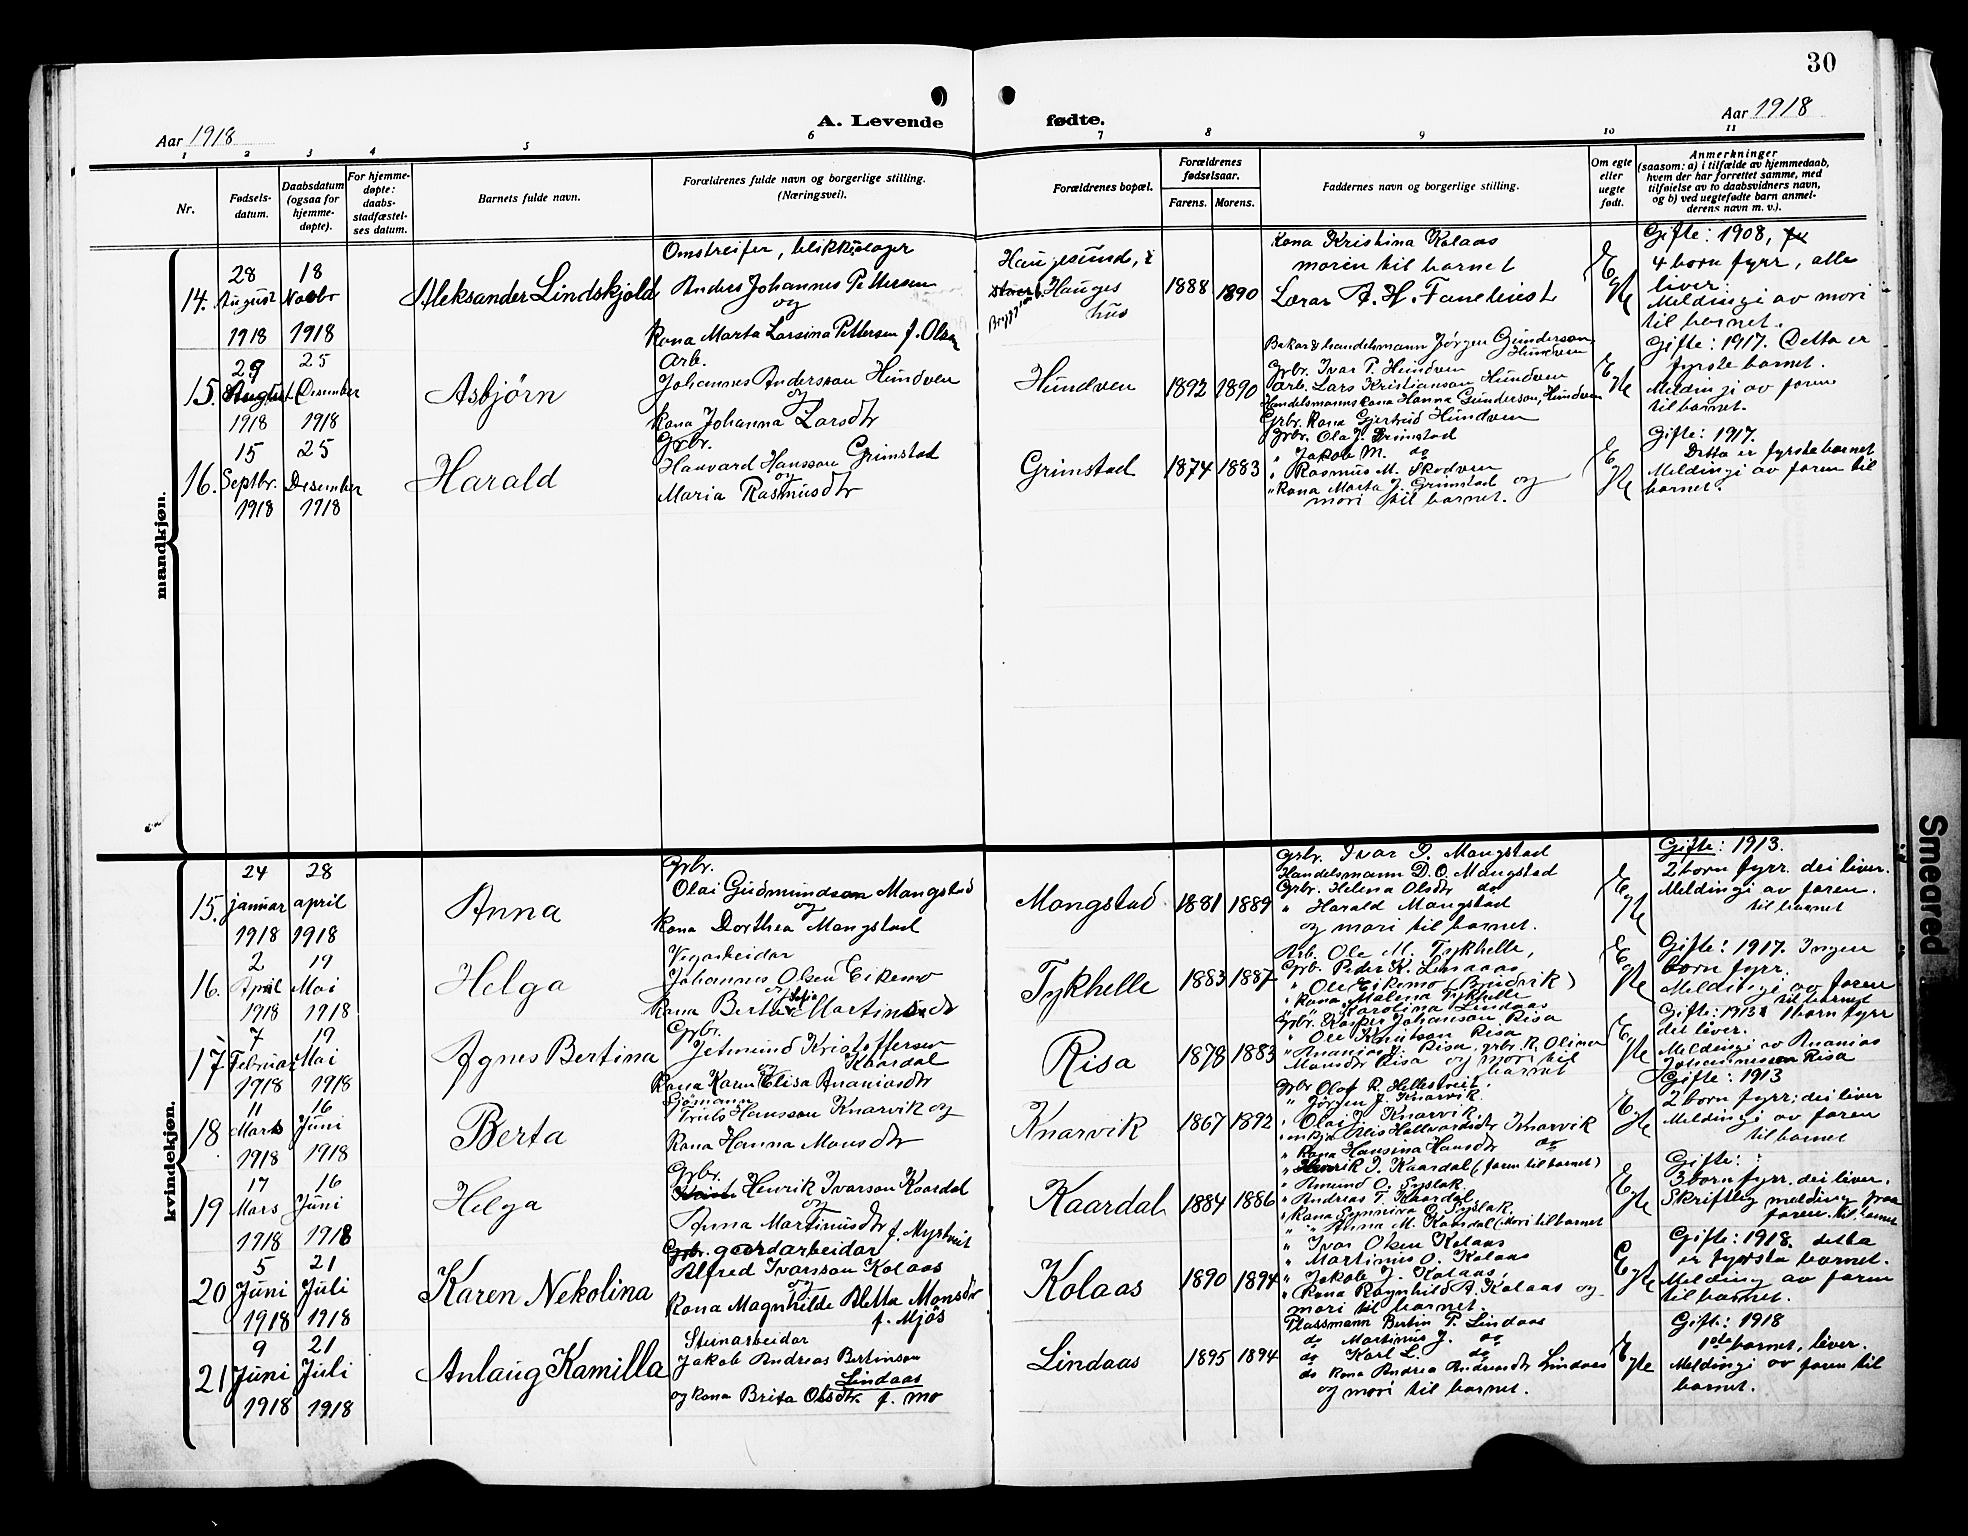 30
Aar 1918
A. Levende fødte.
Aar 1918
1 2 3 4 5 6 7 8 9 10 11
Nr.
Fødsels-
datum.
Daabsdatum
(ogsaa for
hjemme-
døpte).
For hjemme-
døpte:
daabs-
stadfæstel-
ses datum.
Barnets fulde navn.
Forældrenes fulde navn og borgerlige stilling.
(Næringsvei).
Forældrenes bopæl.
Forældrenes
fødselsaar.
Farens. Morens.
Faddernes navn og borgerlige stilling.
Om egte
eller
uegte
født.
Anmerkninger
(saasom: a) i tilfælde av hjemmedaab,
hvem der har forrettet samme, med
tilføielse av to daabsvidners navn,
og b) ved uegtefødte barn anmel-
derens navn m. v.).
mandkjøn.
14.
28
August
1918
18
Novbr
1918
Aleksander Lindskjold
Omstreifer, blikkslager
Anders Johannes Pettersen
og
Kona Marta Larsina Pettersen f. Olsen
Haugesund, i
Hauges
hus
1888 1890
Kona Kristina Kolaas
moren til barnet
Lærar A. H. Fanebust
Egte
Gifte: 1908,
4 born fyrr, alle
liver.
Meldingi av mori
til barnet.
15.
29
August
1918
25
Desember
1918
Asbjørn
Arb.
Johannes Andersson Hundven
og
Kona Johanna Larsdtr
Hundven
1892 1890
Bakar & handelsmann Jørgen Gunderson
Hundven
Grbr. Ivar P. Hundven
Arb. Lars Kristianson Hundven
Handelsmannskona Hanna Gunderson, Hundven
Grbr. Kona Gjertrud Hundven
Egte
Gifte: 1917. Detta er
fyrste barnet.
Meldingi av faren
til barnet.
16.
15
Septbr.
1918
25
Desember
1918
Harald
Grbr.
Haavard Hansson Grimstad
og
Maria Rasmusdtr
Grimstad
1874 1883
Grbr. Ola J. Grimstad
" Jakob M. do
" Rasmus M. Skodven
" Kona Marta J. Grimstad og
mori til barnet.
Egte
Gifte: 1917.
Detta er fyrste barnet
Meldingi av faren til
barnet.
kvindekjøn.
15.
24
januar
1918
28
april
1918
Anna
Grbr.
Olai Gudmundson Mongstad
og
Kona Dorthea Mongstad
Mongstad
1881 1889
Grbr. Ivar I. Mongstad
Handelsmann D. O. Mongstad
Grbr. Helena Olsdtr do
" Harald Mongstad
og mori til barnet.
Egte
Gifte: 1913.
2 born fyrr. dei liver.
Meldingi av faren.
til barnet
16.
2
April
1918
19
Mai
1918
Helga
Vegarbeidar
Johannes Olsen Eikemo
og
Kona Berta Sofie Martinsdtr
Tykhelle
1883 1887
Arb. Ole M. Tykhelle,
Grbr. Peder K. Lindaas
" Ole Eikemo (Bruvik)
" Kona Malena Tykhelle
" " Karolina Lindaas
Egte
Gifte: 1917. Ingen
born fyrr.
Meldingi av faren
til barnet
17
7
Februar
1918
19
Mai
1918
Agnes Bertina
Grbr.
Jetmund Kristoffersen
Kaardal
og
Kona Karen Elisa Ananiasdtr
Risa
1878 1883
Grbr. Kasper Johanson Risa
" Ole Knutson Risa
" Ananias J. Risa, grbr. R. Olina
Monsdtr Risa og mori til
barnet
Egte
Gifte: 1913 1 born fyrr
det liver.
Meldingi av Ananias
Johannesson Risa
18
11
Mars
1918
16
Juni
1918
Berta
Sjømann
Truls Hansson Knarvik og
Kona Hanna Monsdtr
Knarvik
1867 1892
Grbr Olaf R. Hellestveit.
" Jørgen J. Knarvik.
" Olai J. Knarvik.
" Nils Hallvardsdtr Knarvik
" Kona Hansina Hansdtr do
Egte
Gifte: 1913
2 born fyrr: dei liver
Meldingi av faren
til barnet
19
17
Mars
1918
16
Juni
1918
Helga
Grbr.
Henrik Ivarson Kaardal
og
Anna Martinusdtr f. Myrtveit
Kaardal
1884 1886
" Henrik I. Kaardal (faren til barnet)
" Amund O. Syslak
" Andreas T. Kaardal
" Kona Synnøva O. Syslak.
" " Anna M. Kaardal (mori til barnet
Egte
Gifte: :
3 born fyrr. dei liver.
Skriftleg melding fraa
faren til barnet
20
5
Juni
1918
21
Juli
1918
Karen Nekolina
Grbr. gardarbeidar
Alfred Ivarsson Kolaas
og
Kona Magnhilde Aletta Monsdtr
f. Mjøs
Kolaas
1890 1894
" Ivar Olsen Kolaas
" Martinus O. Kolaas
" Jakob J. Kolaas,
" Kona Ragnhild A. Kolaas og
mori til barnet.
Egte
Gifte: 1918. detta
er fyrsta barnet.
Melding av faren
til barnet.
21
9
Juni
1918
21
Juli
1918
Anlaug Kamilla
Steinarbeidar
Jakob Andreas Bertinson
Lindaas
og kona Brita Olsdtr. f. Mo
Lindaas
1895 1894
Plassmann Bertin P. Lindaas
do Martinus J. do
do Karl L. do
do Kona Andrea Andreasdtr Lindaas
og mori til barnet.
Egte
Gifte: 1918
1ste barnet, liver.
Meldingi av faren til
barnet.
Smeared